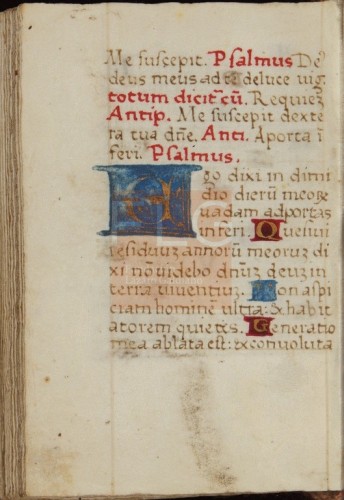 Me suscepit. Psalmus De⁹
deus meus ad te de luce uig
totum dicit̄ cū. Requieʒ
Antip. Me suscepit dexte
ra tua dn̄e. Anti. Aporta ī
feri. Psalmus.
Ego dixi in dimi
dio dierū meoꝝ
uadam ad portas
inferi. Quesiui
residuuʒ annorū meoruʒ di
xi nō uidebo dn̄uʒ deuʒ in
terra uiuentiuʒ. Non aspi
ciam hominē ultra: & habit
atorem quietis. Generatio
mea ablata est: & conuoluta